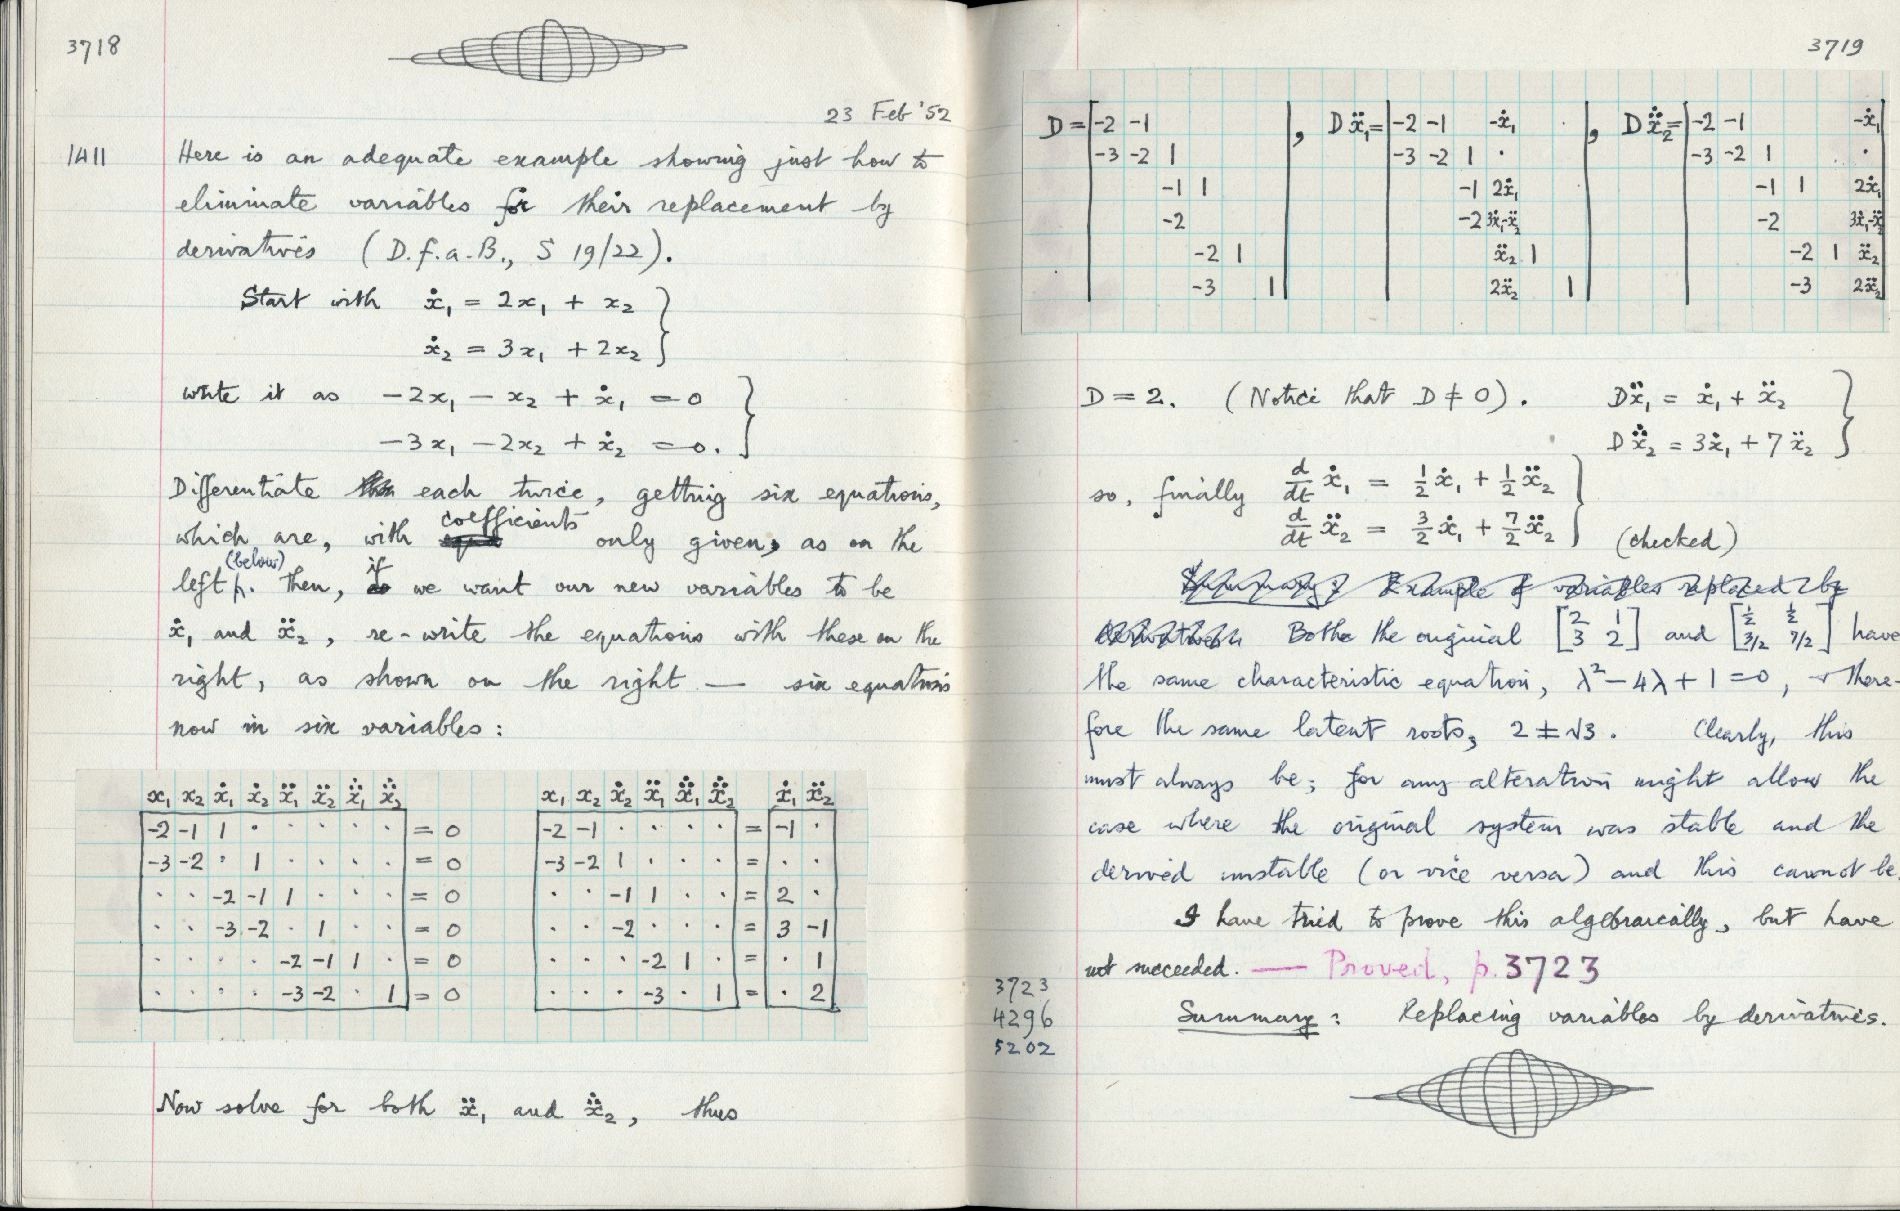 3718
23 Feb '52
1411
Here is an adequate example showing just how to
eliminate variables for their replacement by
derivatives (D.f.a.B., S 19/22).
Start with ẋ₁ = 2x₁ + x₂
ẋ₂ = 3x₁ + 2x₂
write it as −2x₁ − x₂ + ẋ₁ = 0
−3x₁ − 2x₂ + ẋ₂ = 0.
Differentiate each twice, getting six equations,
which are, with coefficients only given, as on the
left (below). Then, if we want our new variables to be
ẋ₁ and ẍ₂, re-write the equations with these on the
right, as shown on the right — six equations
now in six variables:
x₁ x₂ ẋ₁ ẋ₂ ẍ₁ ẍ₂ x⃛₁ x⃛₂
-2 -1 1 · · · · · = 0
-3 -2 · 1 · · · · = 0
· · -2 -1 1 · · · = 0
· · -3 -2 · 1 · · = 0
· · · · -2 -1 1 · = 0
· · · · -3 -2 · 1 = 0
x₁ x₂ ẋ₂ ẍ₁ x⃛₁ x⃛₂ ẋ₁ ẍ₂
-2 -1 · · · · = -1 ·
-3 -2 1 · · · = · ·
· · -1 1 · · = 2 ·
· · -2 · · · = 3 -1
· · · -2 1 · = · 1
· · · -3 · 1 = · 2
Now solve for both ẍ₁ and x⃛₂, thus
3719
D = | -2 -1 | , Dẍ₁ = | -2 -1 -ẋ₁ · | , Dx⃛₂ = | -2 -1 -ẋ₁ |
-3 -2 1 -3 -2 1 · -3 -2 1 ·
-1 1 -1 2ẋ₁ -1 1 2ẋ₁
-2 -2 3ẋ₁-ẍ₂ -2 3ẋ₁-ẍ₂
-2 1 ẍ₂ 1 -2 1 ẍ₂
-3 1 2ẍ₂ 1 -3 2ẍ₂
D = 2. (Notice that D ≠ 0). Dẍ₁ = ẋ₁ + ẍ₂
Dx⃛₂ = 3ẋ₁ + 7ẍ₂
so, finally d/dt ẋ₁ = 1/2 ẋ₁ + 1/2 ẍ₂
d/dt ẍ₂ = 3/2 ẋ₁ + 7/2 ẍ₂
(checked)
Summary: Example of variables replaced by
derivatives. Both the original [2 1 / 3 2] and [1/2 1/2 / 3/2 7/2] have
the same characteristic equation, λ² − 4λ + 1 = 0, & there-
fore the same latent roots, 2 ± √3. Clearly, this
must always be; for any alteration might allow the
case where the original system was stable and the
derived unstable (or vice versa) and this cannot be.
I have tried to prove this algebraically, but have
not succeeded. — Proved, p. 3723
3723
4296
5202
Summary: Replacing variables by derivatives.